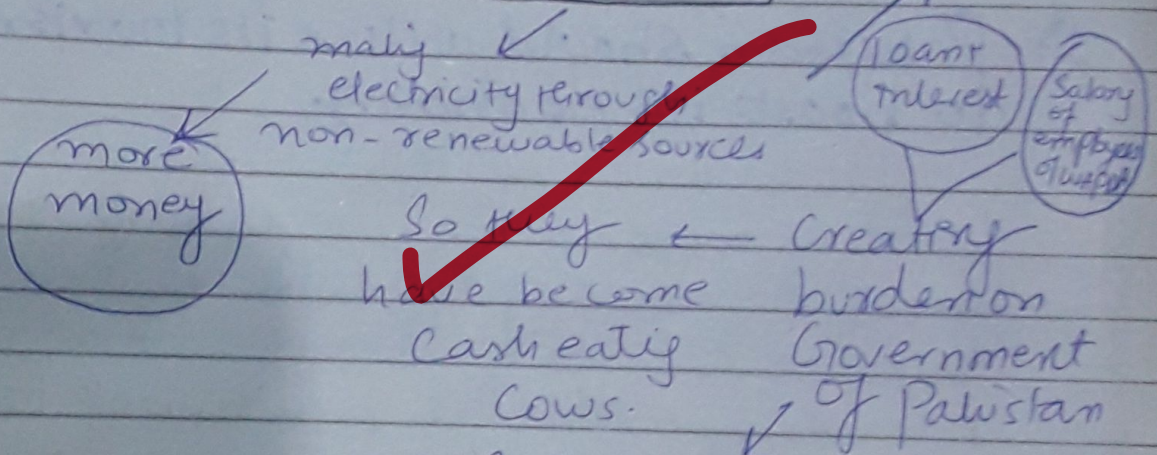 making
electricity through
non-renewable sources
more
money
loans
interest
Salary
of
employees
So they
have become
Cash eatig
Cows.
Creating
burden on
Government
of Pakistan